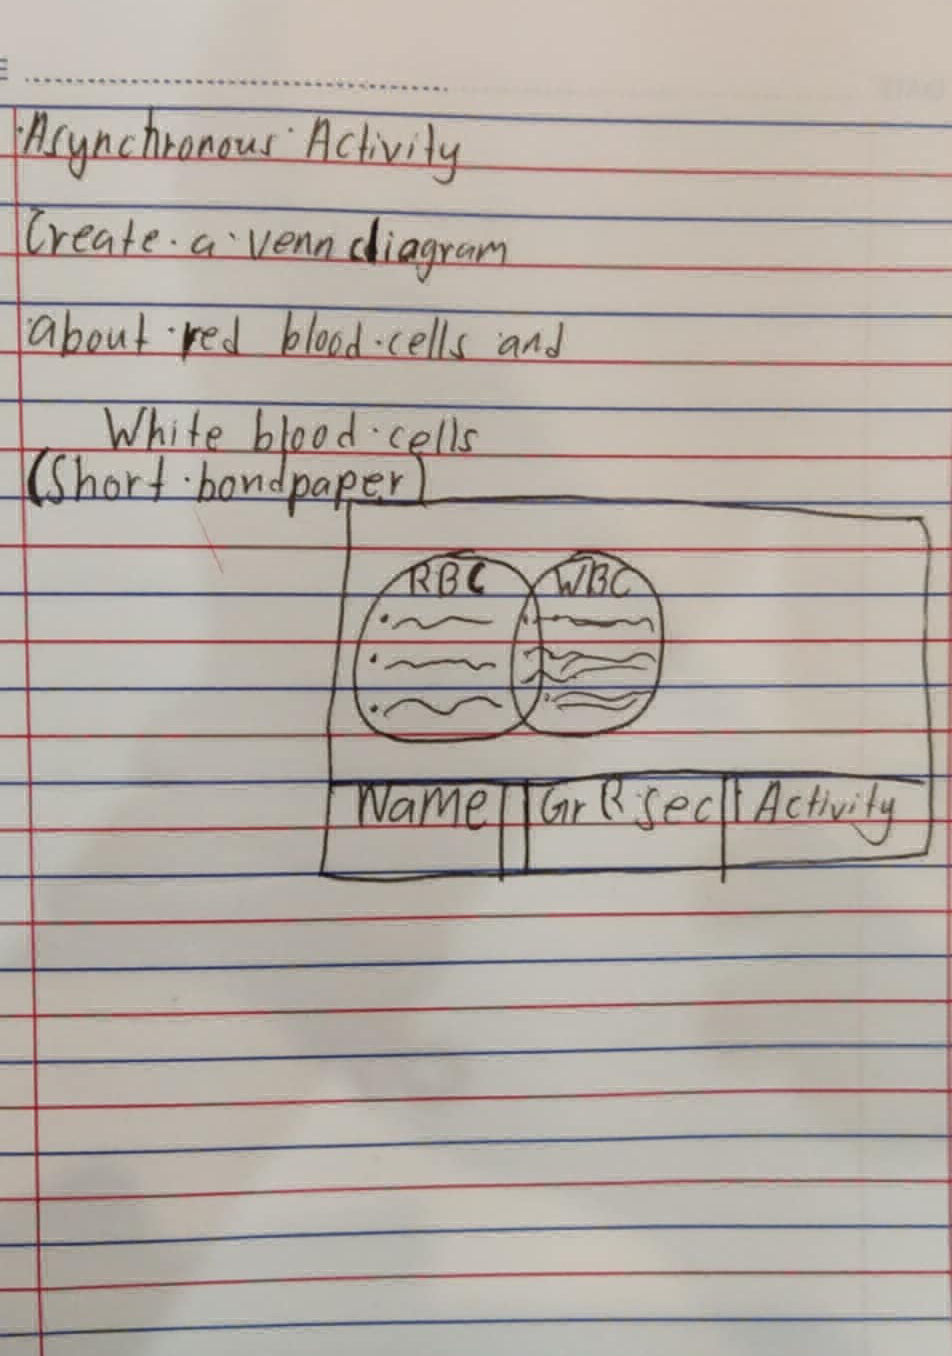 Asynchronous Activity
Create a venn diagram
about red blood cells and
White blood cells
(Short bondpaper)
RBC WBC
Name Gr & sec Activity